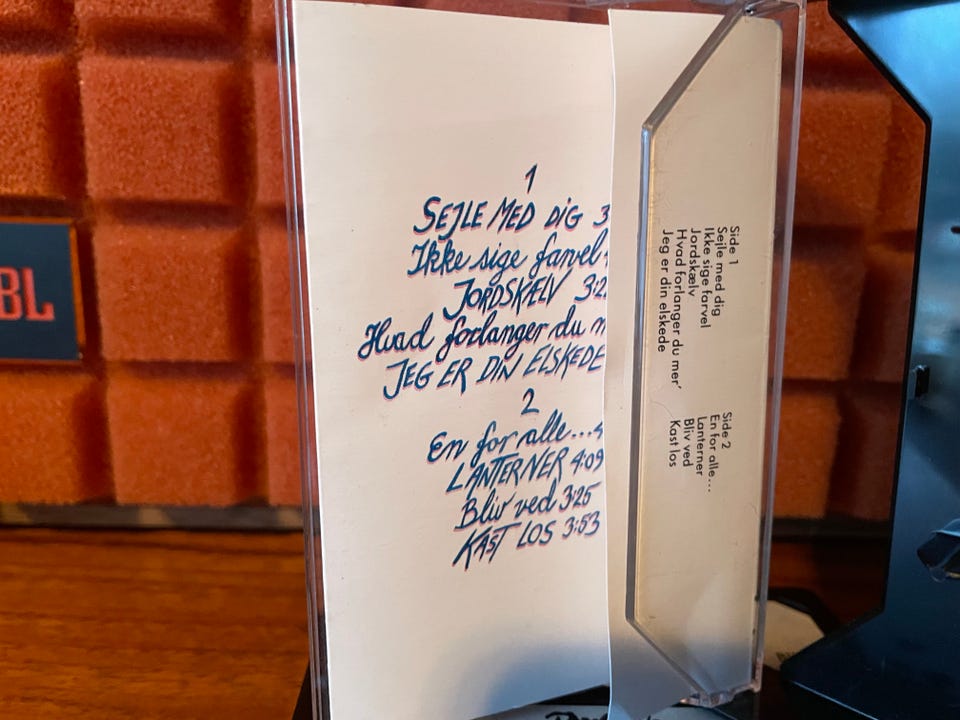 1
SEJLE MED DIG 3
Ikke sige farvel
JORDSKÆLV 3:2
Hvad forlanger du m
JEG ER DIN ELSKEDE
2
En for alle...4
LANTERNER 4:09
Bliv ved 3:25
KAST LOS 3:53
Side 1
Sejle med dig
Ikke sige farvel
Jordskælv
Hvad forlanger du mer'
Jeg er din elskede
Side 2
En for alle...
Lanterner
Bliv ved
Kast los
BL